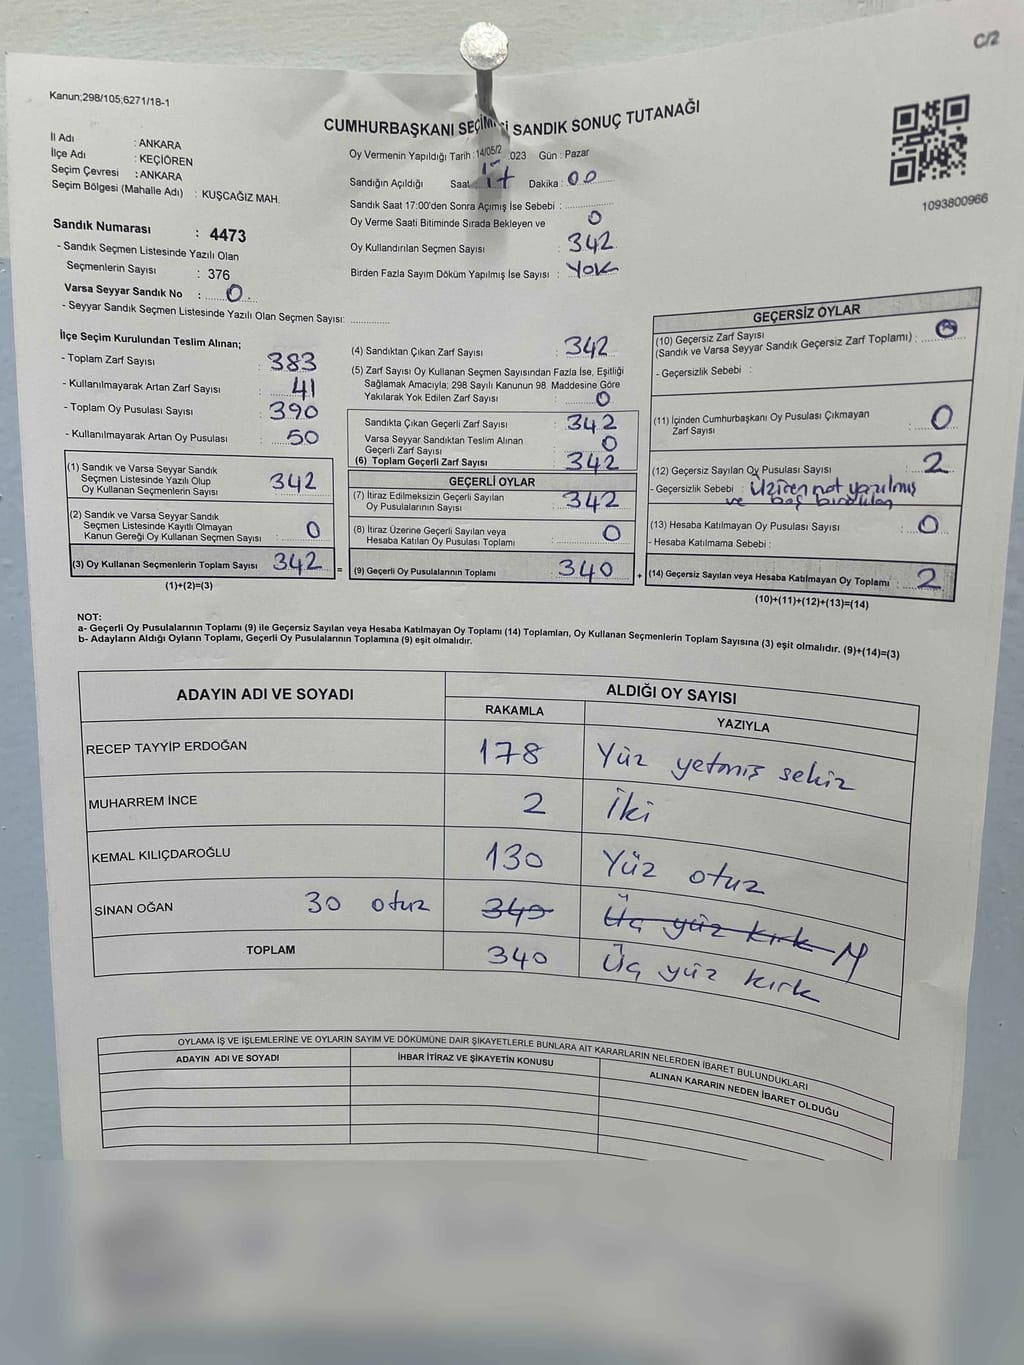 C/2
Kanun;298/105;6271/18-1
CUMHURBAŞKANI SEÇİM SANDIK SONUÇ TUTANAĞI
1093800966
İl Adı : ANKARA
İlçe Adı : KEÇİÖREN
Seçim Çevresi : ANKARA
Seçim Bölgesi (Mahalle Adı) : KUŞCAĞIZ MAH.
Oy Vermenin Yapıldığı Tarih : 14/05/2023 Gün : Pazar
Sandığın Açıldığı Saat 17 Dakika : 00
Sandık Saat 17:00'den Sonra Açımış İse Sebebi :
Oy Verme Saati Bitiminde Sırada Bekleyen ve 0
Oy Kullandırılan Seçmen Sayısı : 342
Birden Fazla Sayım Döküm Yapılmış İse Sayısı : YOK
Sandık Numarası : 4473
- Sandık Seçmen Listesinde Yazılı Olan
Seçmenlerin Sayısı : 376
Varsa Seyyar Sandık No : 0
- Seyyar Sandık Seçmen Listesinde Yazılı Olan Seçmen Sayısı:
İlçe Seçim Kurulundan Teslim Alınan;
- Toplam Zarf Sayısı : 383
- Kullanılmayarak Artan Zarf Sayısı : 41
- Toplam Oy Pusulası Sayısı : 390
- Kullanılmayarak Artan Oy Pusulası : 50
(1) Sandık ve Varsa Seyyar Sandık
Seçmen Listesinde Yazılı Olup
Oy Kullanan Seçmenlerin Sayısı 342
(2) Sandık ve Varsa Seyyar Sandık
Seçmen Listesinde Kayıtlı Olmayan
Kanun Gereği Oy Kullanan Seçmen Sayısı : 0
(3) Oy Kullanan Seçmenlerin Toplam Sayısı 342 =
(1)+(2)=(3)
(4) Sandıktan Çıkan Zarf Sayısı : 342
(5) Zarf Sayısı Oy Kullanan Seçmen Sayısından Fazla İse, Eşitliği
Sağlamak Amacıyla; 298 Sayılı Kanunun 98. Maddesine Göre
Yakılarak Yok Edilen Zarf Sayısı : 0
Sandıkta Çıkan Geçerli Zarf Sayısı : 342
Varsa Seyyar Sandıktan Teslim Alınan
Geçerli Zarf Sayısı : 0
(6) Toplam Geçerli Zarf Sayısı : 342
GEÇERLİ OYLAR
(7) İtiraz Edilmeksizin Geçerli Sayılan
Oy Pusulalarının Sayısı : 342
(8) İtiraz Üzerine Geçerli Sayılan veya
Hesaba Katılan Oy Pusulası Toplamı : 0
(9) Geçerli Oy Pusulalarının Toplamı : 340 +
GEÇERSİZ OYLAR
(10) Geçersiz Zarf Sayısı
(Sandık ve Varsa Seyyar Sandık Geçersiz Zarf Toplamı) : 0
- Geçersizlik Sebebi :
(11) İçinden Cumhurbaşkanı Oy Pusulası Çıkmayan
Zarf Sayısı : 0
(12) Geçersiz Sayılan Oy Pusulası Sayısı : 2
- Geçersizlik Sebebi : not yazılmış
ve boş
(13) Hesaba Katılmayan Oy Pusulası Sayısı : 0
- Hesaba Katılmama Sebebi :
(14) Geçersiz Sayılan veya Hesaba Katılmayan Oy Toplamı : 2
(10)+(11)+(12)+(13)=(14)
NOT:
a- Geçerli Oy Pusulalarının Toplamı (9) ile Geçersiz Sayılan veya Hesaba Katılmayan Oy Toplamı (14) Toplamları, Oy Kullanan Seçmenlerin Toplam Sayısına (3) eşit olmalıdır. (9)+(14)=(3)
b- Adayların Aldığı Oyların Toplamı, Geçerli Oy Pusulalarının Toplamına (9) eşit olmalıdır.
ADAYIN ADI VE SOYADI ALDIĞI OY SAYISI
RAKAMLA YAZIYLA
RECEP TAYYİP ERDOĞAN 178 Yüz yetmiş sekiz
MUHARREM İNCE 2 İki
KEMAL KILIÇDAROĞLU 130 Yüz otuz
SİNAN OĞAN 30 otuz 340 Üç yüz kırk
TOPLAM 340 Üç yüz kırk
OYLAMA İŞ VE İŞLEMLERİNE VE OYLARIN SAYIM VE DÖKÜMÜNE DAİR ŞİKAYETLERLE BUNLARA AİT KARARLARIN NELERDEN İBARET BULUNDUKLARI
ADAYIN ADI VE SOYADI İHBAR İTİRAZ VE ŞİKAYETİN KONUSU ALINAN KARARIN NEDEN İBARET OLDUĞU